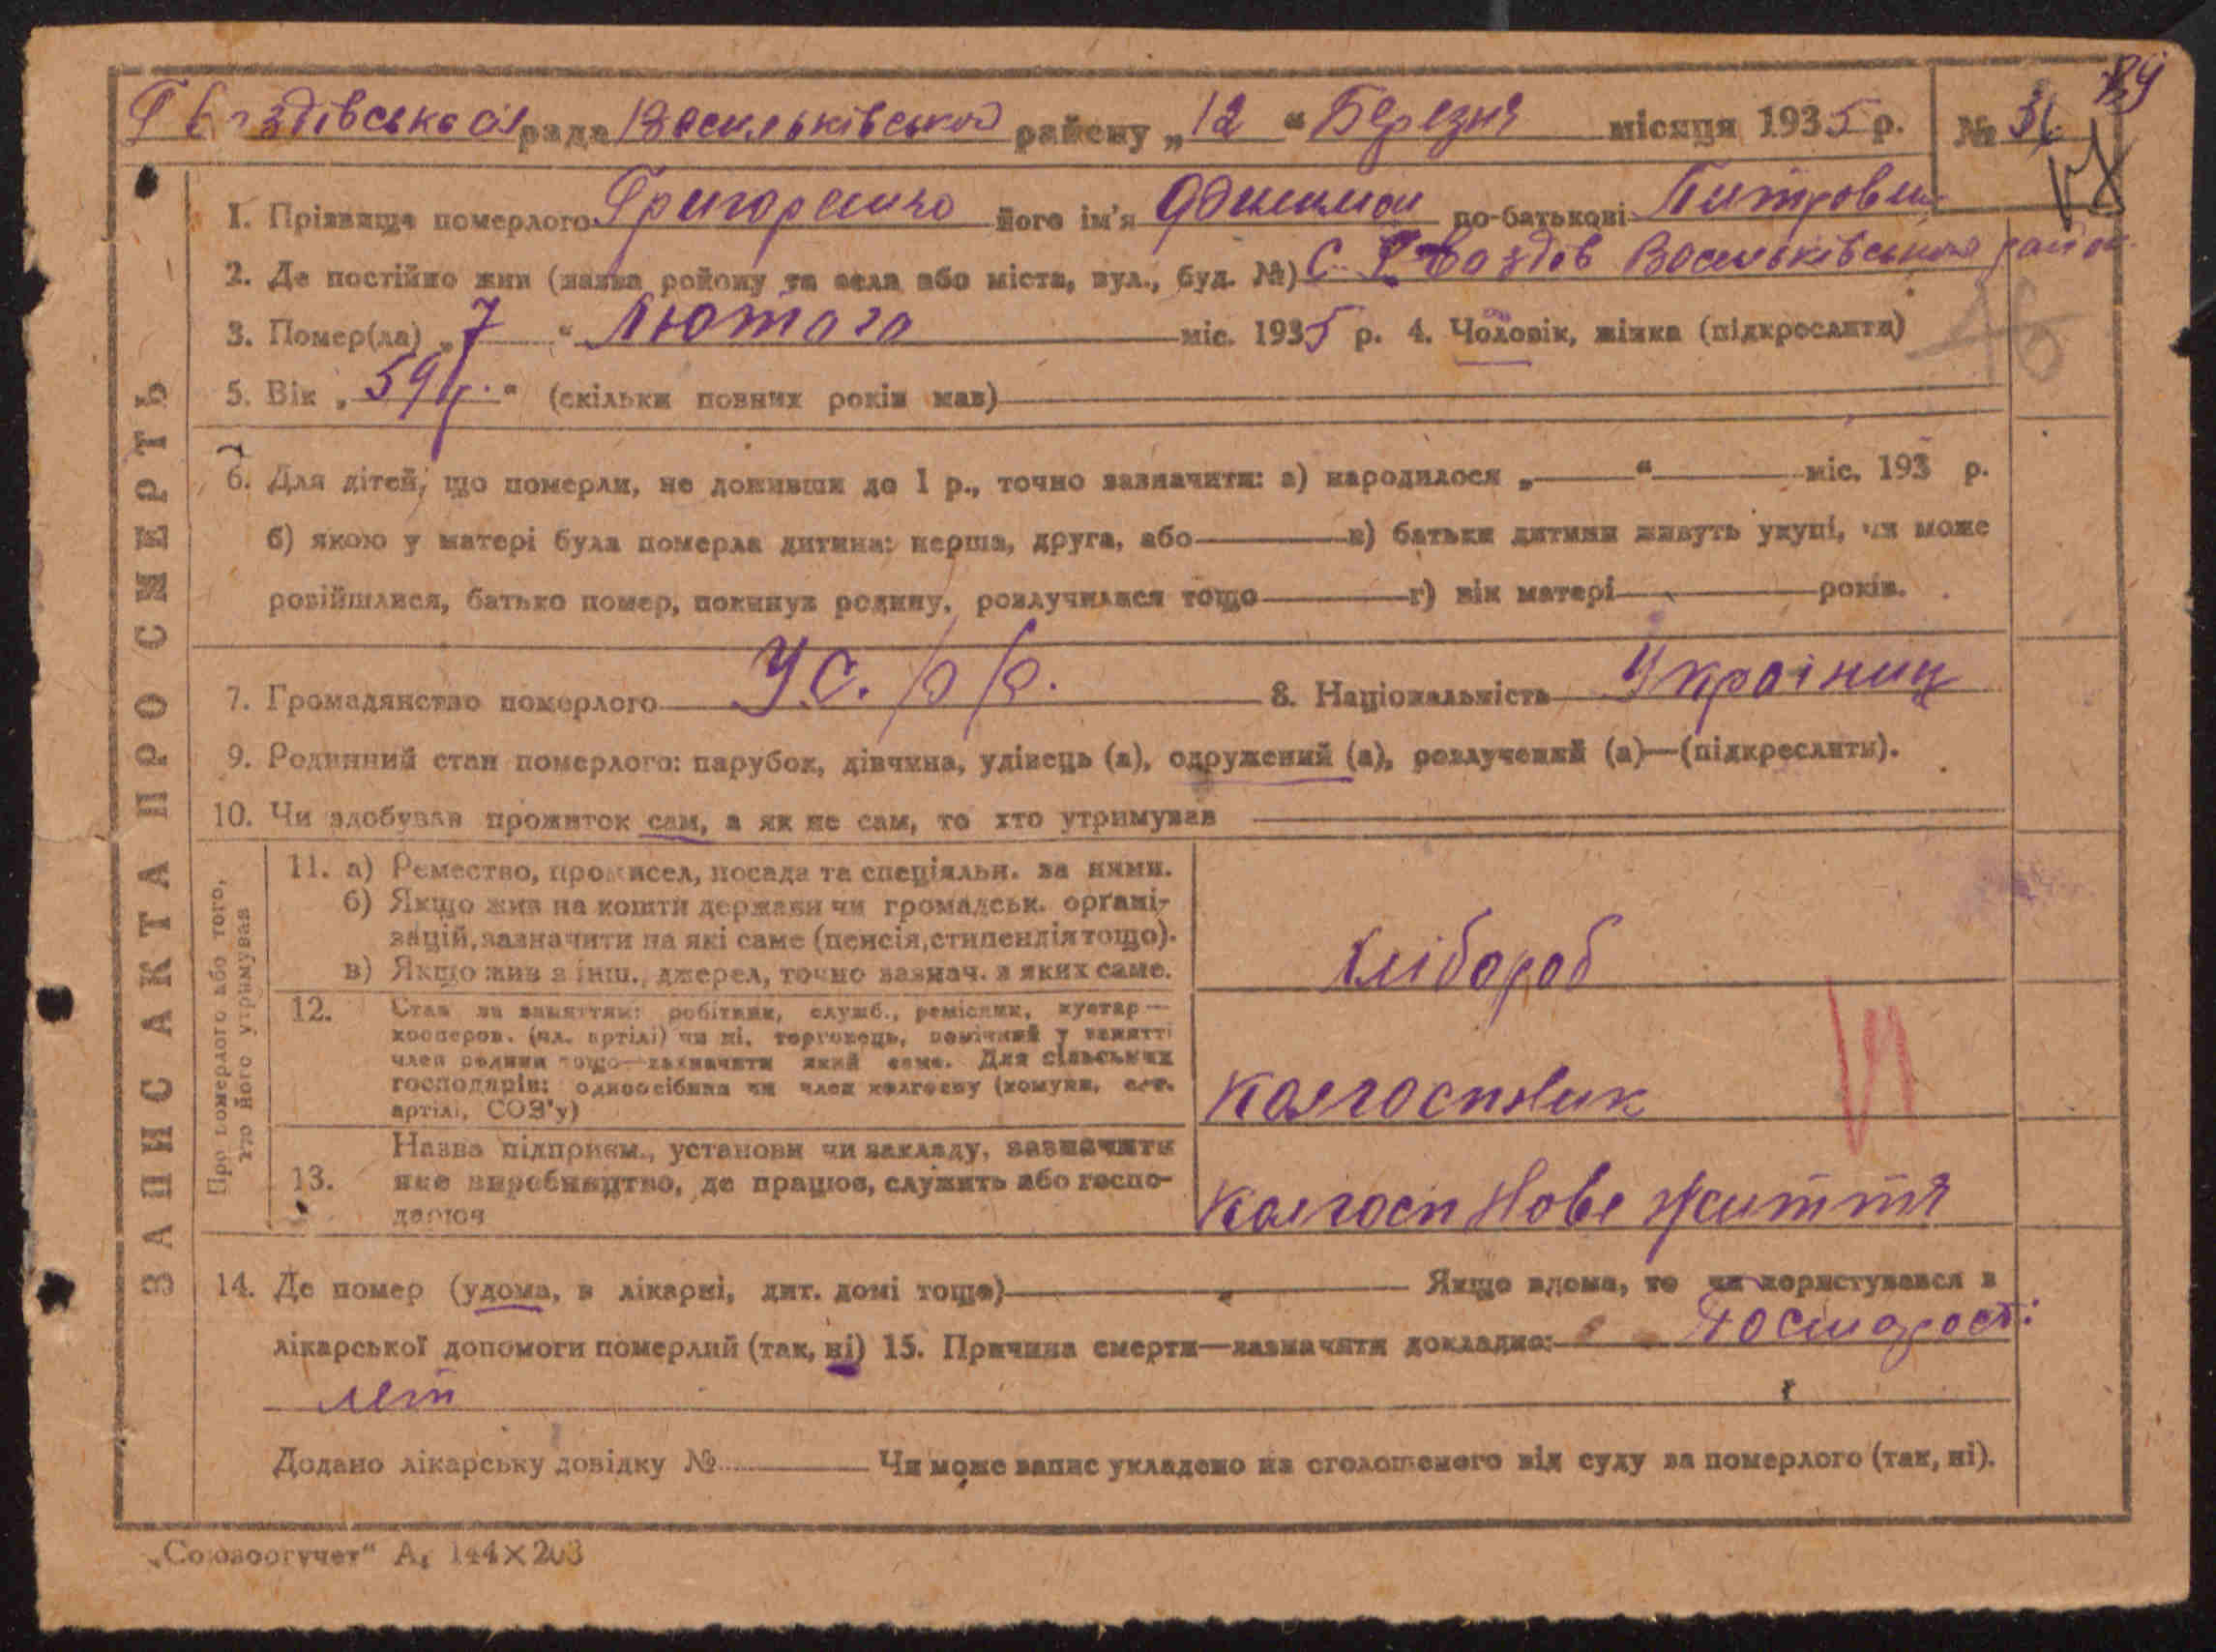 рада Васильківської району „12“ Березня місяця 1935 р. № 
ЗАПИС АКТА ПРО СМЕРТЬ
1. Прізвище померлого його ім'я по-батькові Питрович
2. Де постійно жив (назва району та села або міста, вул., буд. №) С. Гвоздов Васильківського район
3. Помер(ла) „7“ Лютого міс. 1935 р. 4. Чоловік, жінка (підкреслити)
5. Вік „59 р.“ (скільки повних років мав)
6. Для дітей, що померли, не доживши до 1 р., точно зазначити: а) народилося „ “ міс. 193 р.
б) якою у матері була померла дитина: перша, друга, або в) батьки дитини живуть укупі, чи може
розійшлися, батько помер, покинув родину, розлучилися тощо г) вік матері років.
7. Громадянство померлого У.С.Р.Р. 8. Національність Украіниц
9. Родинний стан померлого: парубок, дівчина, удівець (а), одружений (а), розлучений (а)—(підкреслити).
10. Чи здобував прожиток сам, а як не сам, то хто утримував
Про померлого або того, хто його утримував
11. а) Ремество, промисел, посада та спеціяльн. за ними.
б) Якщо жив на кошти держави чи громадськ. органі-
зацій, зазначити на які саме (пенсія, стипендія тощо).
в) Якщо жив з інш. джерел, точно зазнач. з яких саме.
Хлібороб
12. Стан за заняттям: робітник, служб., ремісник, кустар—
кооперов. (чл. артілі) чи ні, торговець, помічний у занятті
член родини тощо—зазначити який саме. Для сільських
господарів: одноосібник чи член колгоспу (комуни,
артілі, СОЗ'у)
Колгоспник
13. Назва підприєм., установи чи закладу, зазначити
яке виробництво, де працює, служить або госпо-
дарює
Колгосп Нове життя
14. Де помер (удома, в лікарні, дит. домі тощо) Якщо вдома, то чи користувався з
лікарської допомоги померлий (так, ні) 15. Причина смерти—зазначити докладно: По старості
лет
Додано лікарську довідку № Чи може запис укладено на оголошеного від суду за померлого (так, ні).
„Союзоргучет“ А₅ 144×203